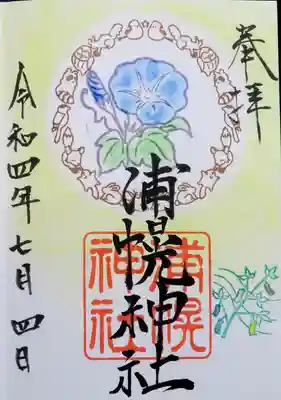 奉拝
浦幌神社
浦幌神社
令和四年七月四日